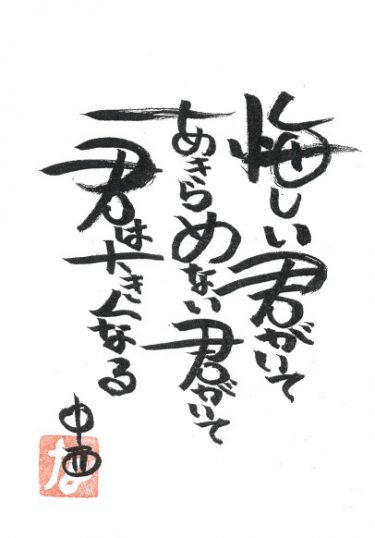 悔しい君がいて
あきらめない君がいて
君は大きくなる
中西
な